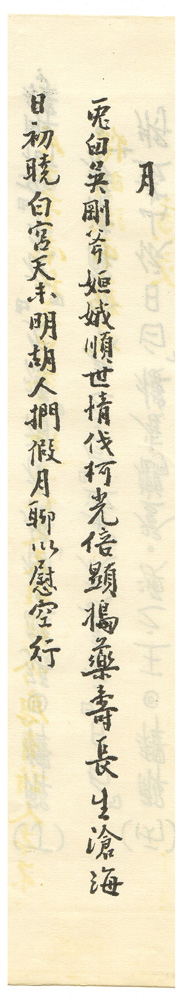 月
兎臼吳剛斧姮娥順世情伐柯光倍顯搗藥壽長生滄海
日初曉白宮天未明胡人捫假月聊以慰空行